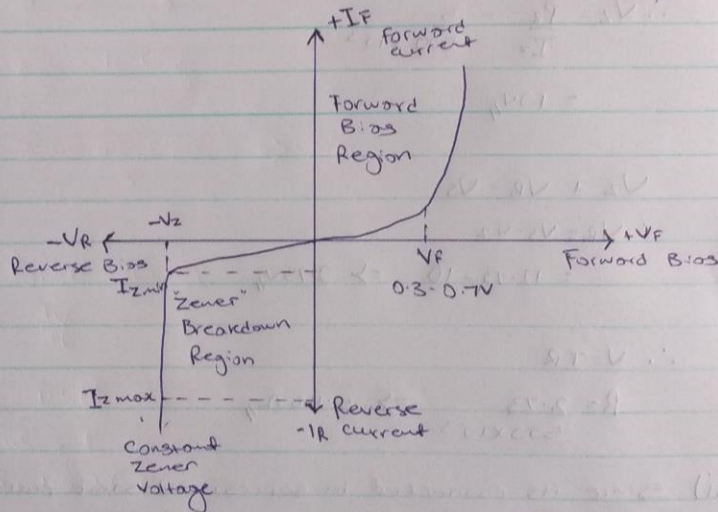 +IF
Forward
current
Forward
Bias
Region
-VZ
-VR
+VF
Reverse Bias
VF
Forward Bias
IZmin
0.3-0.7V
"Zener"
Breakdown
Region
IZ max
Reverse
-IR current
Constant
Zener
Voltage